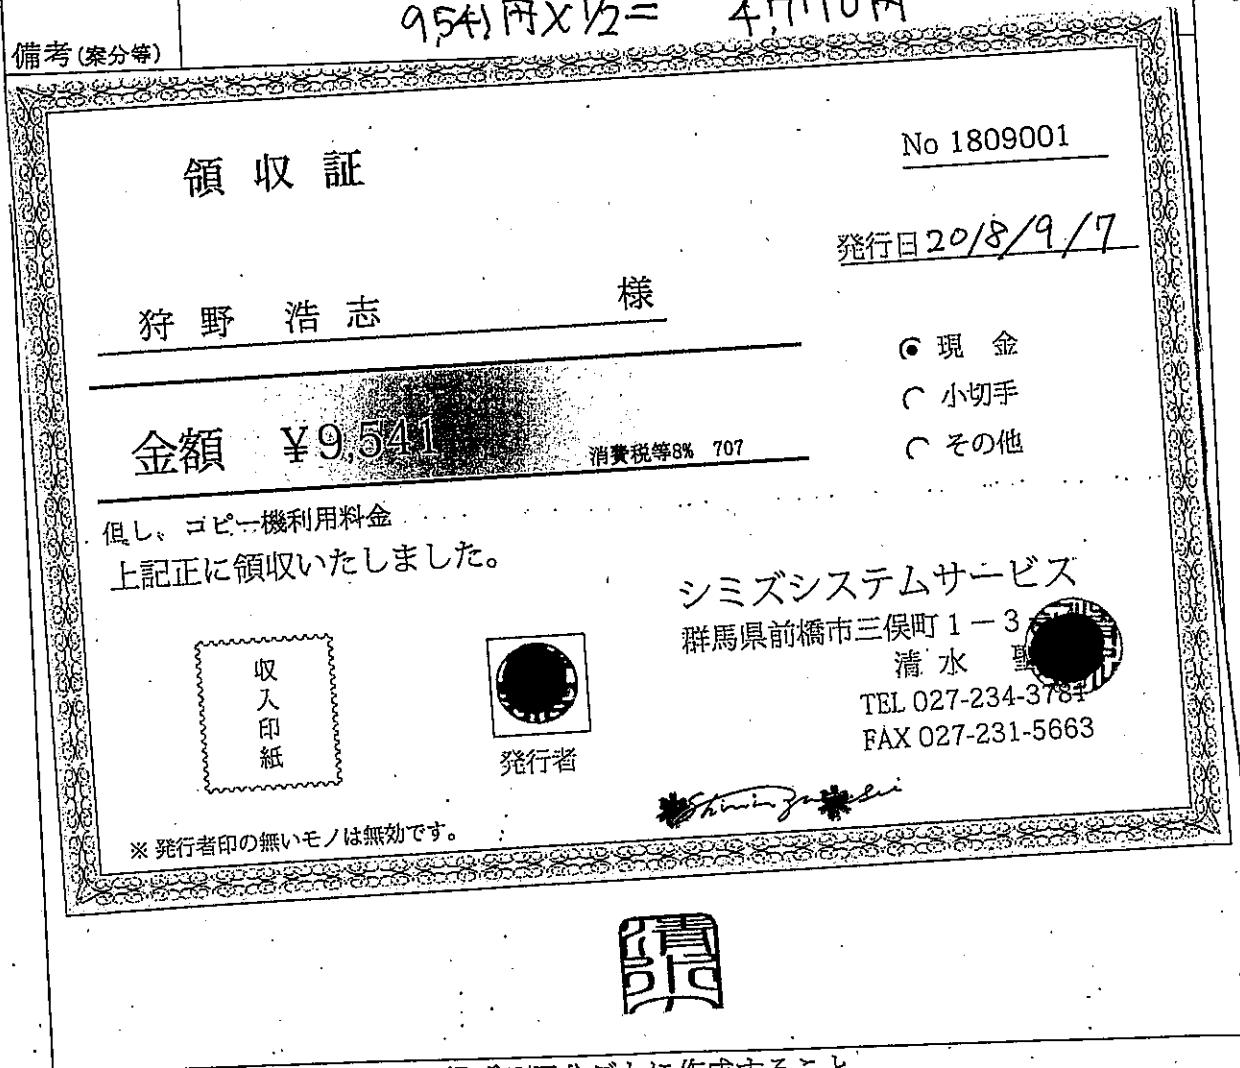 9,541円×1/2= 4,770円
備考(案分等)
領収証
No 1809001
発行日 2018/9/7
狩野 浩志 様
現金
小切手
その他
金額 ¥9,541 消費税等8% 707
但し、コピー機利用料金
上記正に領収いたしました。
シミズシステムサービス
群馬県前橋市三俣町1-3
清水
TEL 027-234-3781
FAX 027-231-5663
収入印紙
発行者
※発行者印の無いモノは無効です。
清水